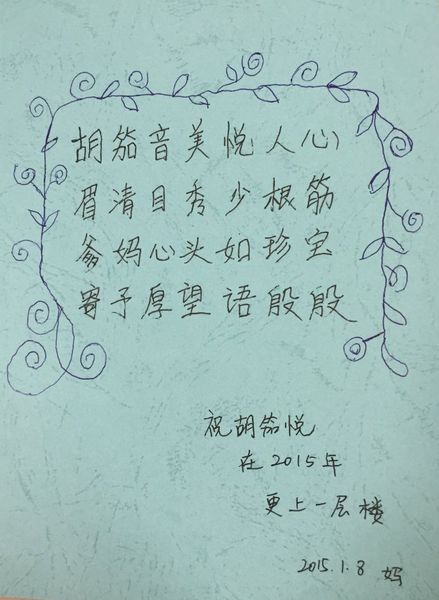 胡笳音美悦(人心)
眉清目秀少根筋
爹妈心头如珍宝
寄予厚望语殷殷
祝胡笳悦
在2015年
更上一层楼
2015.1.8 妈